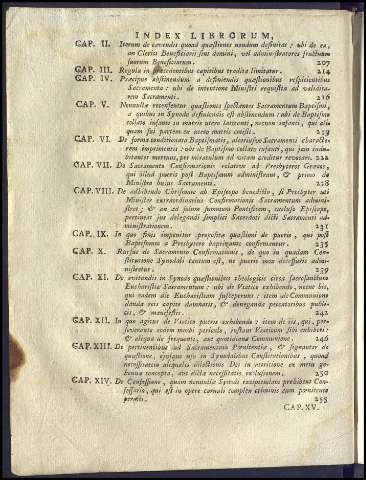 INDEX LIBRORUM,
CAP. II. Iterum de cavendis quoad quæstiones nondum definitas: ubi de ea,
an Clerici Beneficiarii sint domini, vel administratores fructuum
suorum Beneficiorum. 207
CAP. III. Regula in præcedentibus capitibus tradita limitatur. 214
CAP. IV. Præcipue abstinendum a definiendis quæstionibus respicientibus
Sacramenta: ubi de intentione Ministri requisita ad validita-
tem Sacramenti. 216
CAP. V. Nonnullæ recensentur quæstiones spectantes Sacramentum Baptismi,
a quibus in Synodo definiendis est abstinendum: ubi de Baptismo
collato infanti in maternis utero latenti, necnon infanti, qui alia
quam sui partem ex utero matris emisit. 219
CAP. VI. De forma conditionata Baptismatis, alteriusve Sacramenti characte-
rem imprimentis: ubi de Baptismo collato infanti, qui jam
bitatur mortuus, per miraculum ad vitam creditur revocari. 222
CAP. VII. De Sacramento Confirmationis relative ad Presbyteros Græcos,
qui illud pueris post Baptismum administrant, & primo de
Ministro hujus Sacramenti. 228
CAP. VIII. De adhibendo Chrismate ab Episcopo benedicto, si Presbyter uti
Minister extraordinarius Confirmationis Sacramentum admini-
stret; & an ad solum Summum Pontificem, excluso Episcopo,
pertineat jus delegandi simplici Sacerdoti dicti Sacramenti ad-
ministrationem. 231
CAP. IX. In quo finis imponitur propositæ quæstioni de pueris, qui post
Baptismum a Presbytero hungunt confirmentur. 235
CAP. X. Rursus de Sacramento Confirmationis, de quo in quadam Con-
stitutione Synodali cautum est, ne pueris non discessuris admi-
nistretur. 239
CAP. XI. De evitandis in Synodo quæstionibus theologicis circa sacrosanctum
Eucharistiæ Sacramentum: ubi de Viatico exhibendo, necne iis,
qui eadem die Eucharistiam susceperunt: item de Communione
danda reis capite damnatis, & deneganda peccatoribus publi-
cis, & manifestis. 242
CAP. XII. In quo agitur de Viatico pueris exhibendo: item de iis, qui, per-
severante eodem morbi periculo, iterum Viaticum sibi exhiberi:
& aliqua de frequenti, aut quotidiana Communione. 246
CAP. XIII. De pertinentibus ad Sacramentum Pœnitentiæ, & signanter de
quæstione, ejusque usu in Synodalibus Constitutionibus, quoad
necessitatem alicujus dilectionis Dei in attritione ex metu ge-
hennæ concepta, aut dictæ necessitatis exclusionem. 250
CAP. XIV. De Confessione, quam nonnullæ Synodi excipiendam prohibent Con-
fessario, qui est in opere carnali complex criminis cum pœnitente
peractis. 255
CAP. XV.